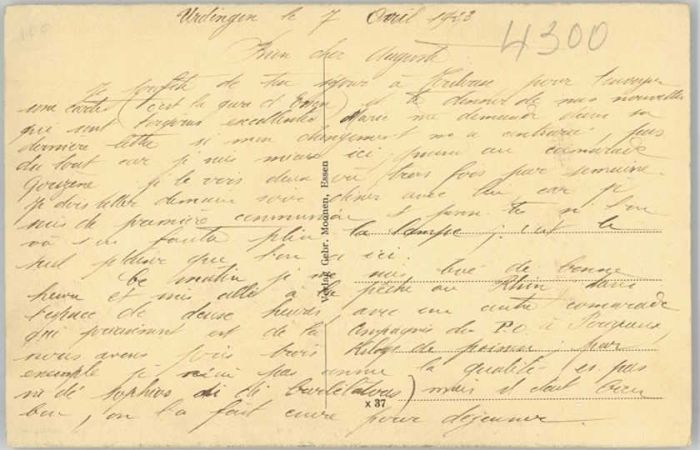 Urdingen le 7 Avril 1923
4300
Mon cher Auguste
Je profite de ton séjour à pour t'envoyer
une carte (c'est la gare d'Essen) et te donner de mes nouvelles
qui sont toujours excellentes Marie me demande dans sa
dernière lettre si mon changement m'a contrarié, pas
du tout car je suis mieux ici, quant au camarade
je le vois deux ou trois fois par semaine.
Je dois aller demain soir dîner avec lui car je
suis de première communion et pour toi si l'on
va s'en foutre plein la lampe, c'est le
seul plaisir que l'on a ici.
Ce matin je me suis levé de bonne
heure et suis allé à la pêche au Rhin, dans
l'espace de deux heures, avec un autre camarade
qui justement est de la Compagnie du P.O. à Périgueux,
nous avons pris trois kilogs de poisson; par
exemple je n'ai pas la qualité, es pas
ni dé ni di mais il était bien
beu, on l'a fait cuire pour déjeuner.
Verlag Gebr. Moonen, Essen
x 37